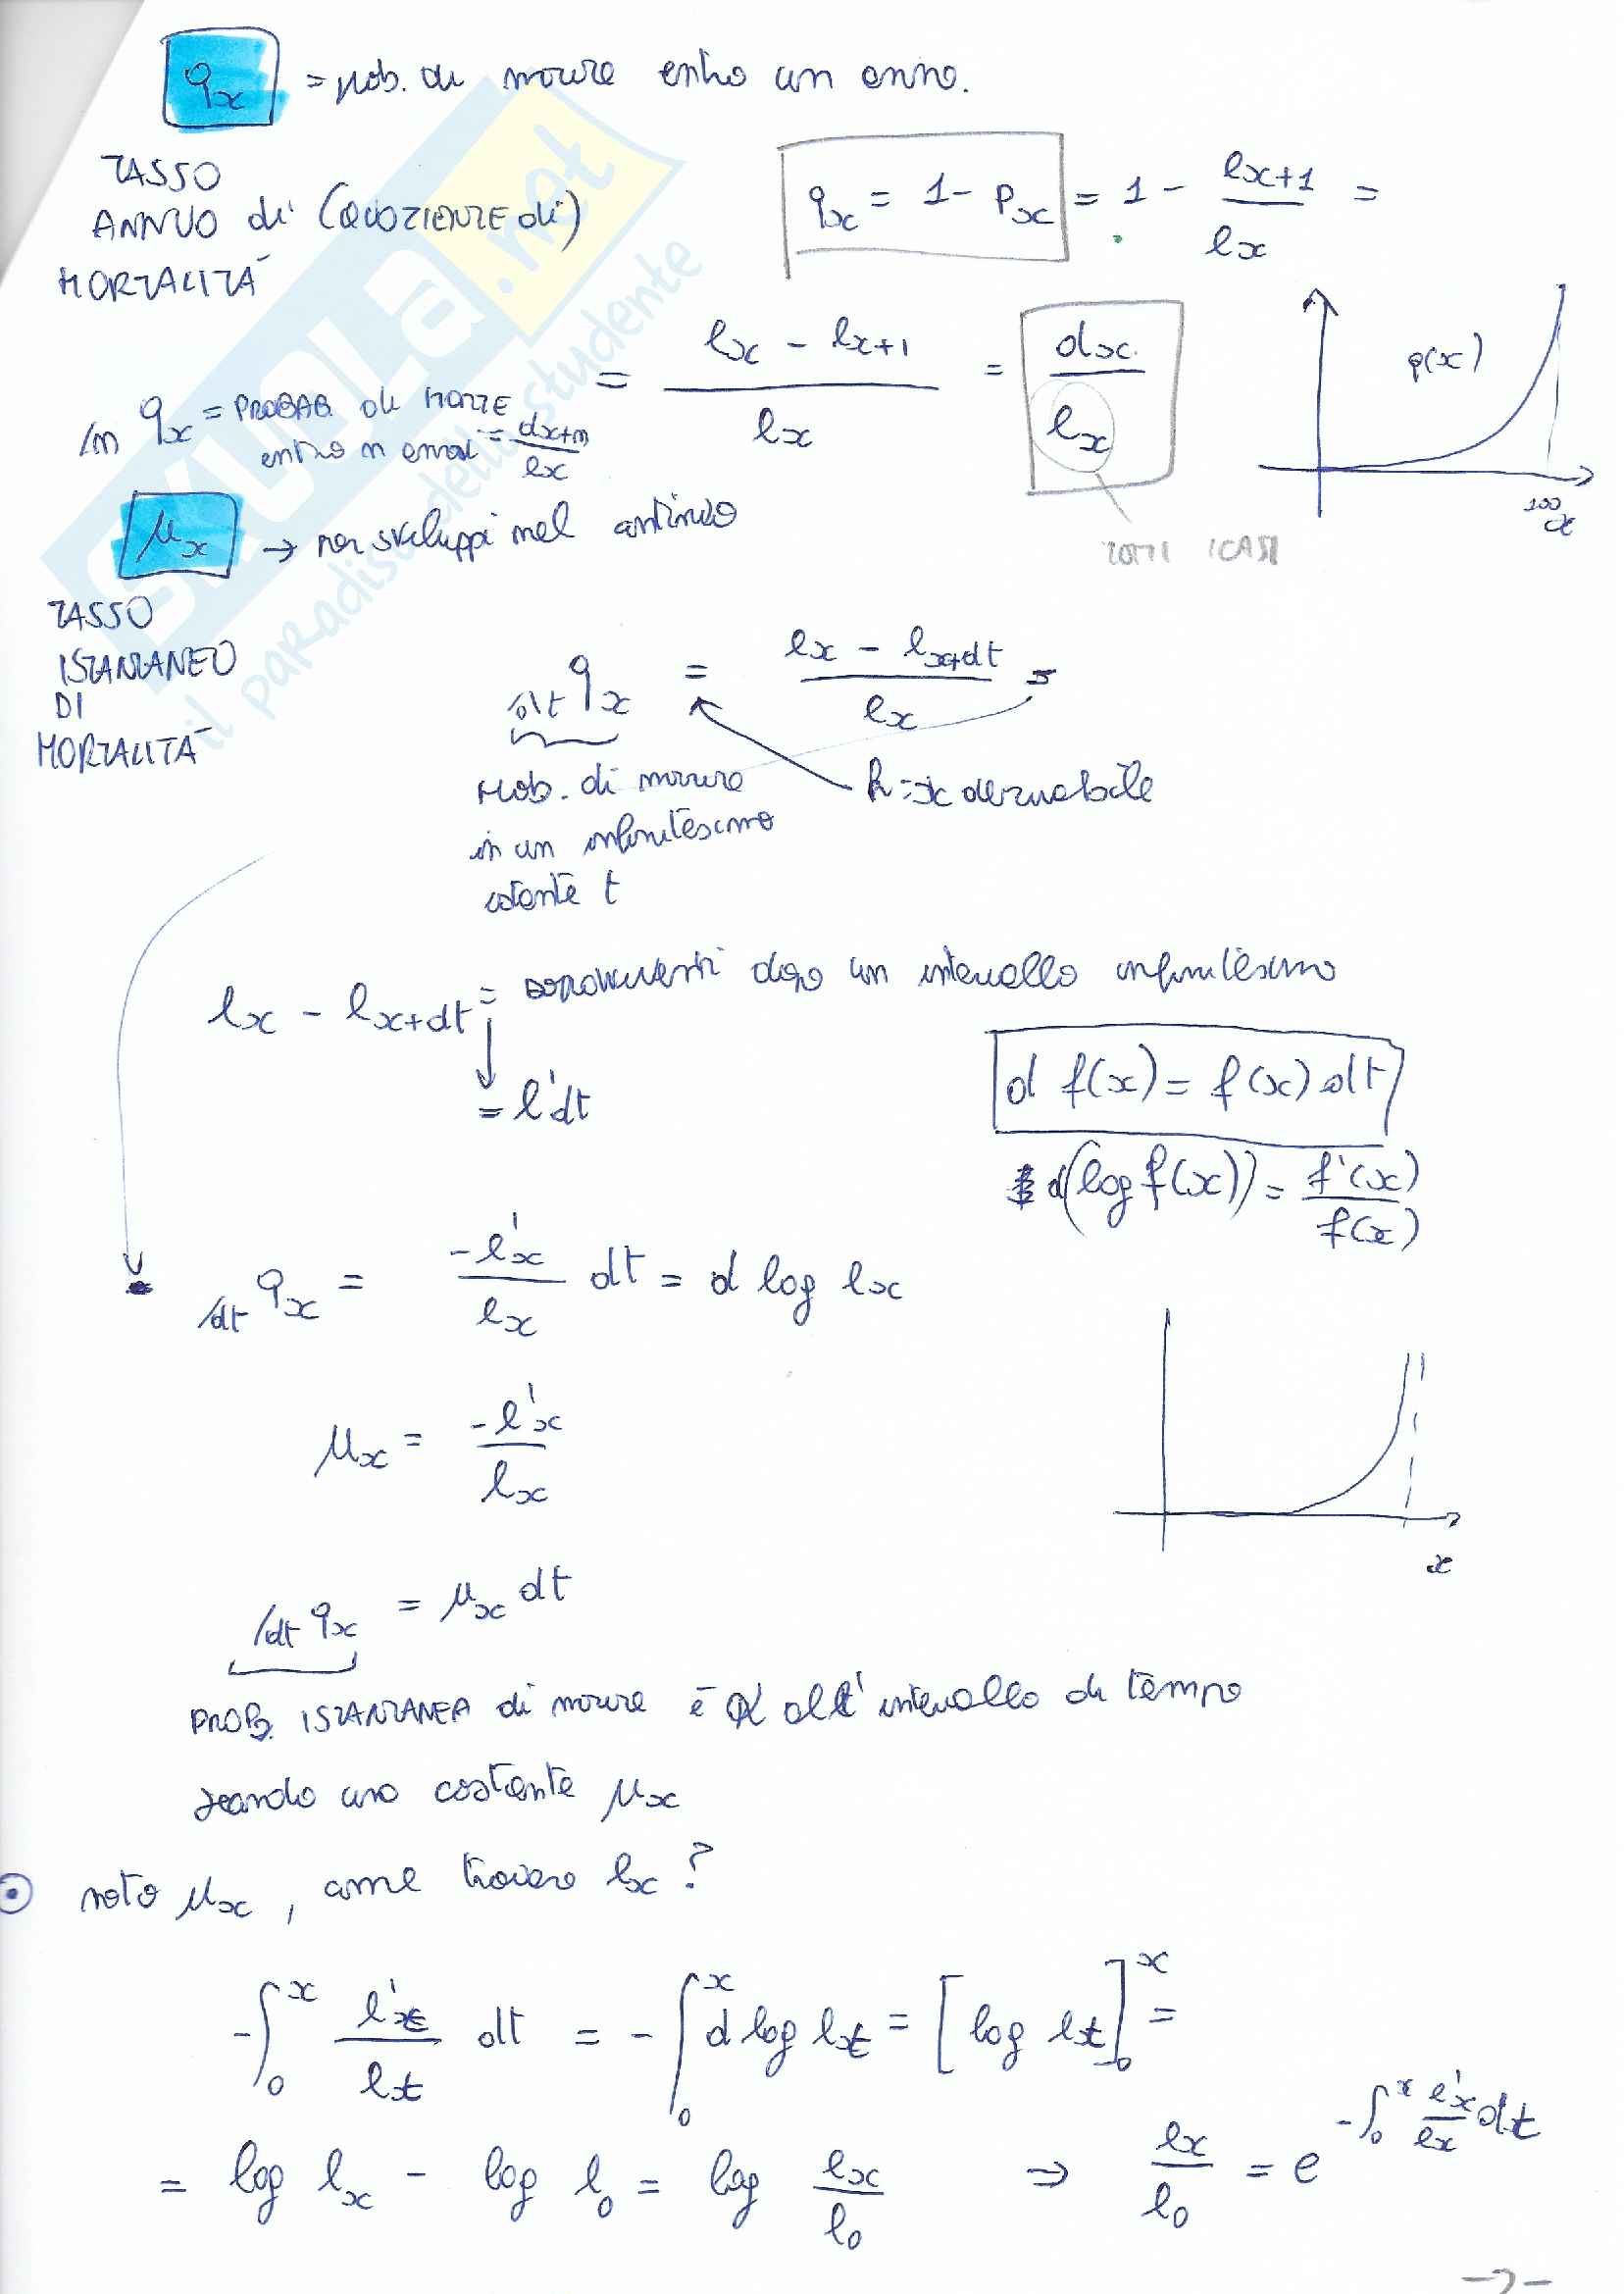 qx = prob. di morire entro un anno.
TASSO
ANNUO di (QUOZIENTE di)
MORTALITÀ
qx = 1 - px = 1 - lx+1 / lx =
= lx - lx+1 / lx = dx / lx
q(x)
100
x
/n qx = PROBAB. di MORTE
entro n anni = dx+n / lx
TUTTI I CASI
μx → per sviluppi nel continuo
TASSO
ISTANTANEO
DI
MORTALITÀ
/dt qx = lx - lx+dt / lx =
prob. di morire
in un infinitesimo
istante t
derivabile
lx - lx+dt = sopravviventi dopo un intervallo infinitesimo
= l'dt
d f(x) = f(x) dt
d(log f(x)) = f'(x) / f(x)
/dt qx = -l'x / lx dt = d log lx
μx = -l'x / lx
x
/dt qx = μx dt
PROB. ISTANTANEA di morire è α all'intervallo di tempo
secondo una costante μx
noto μx, come trovare lx?
-∫0x l't / lt dt = -∫0x d log lt = [log lt]0x =
= log lx - log l0 = log lx / l0 ⇒ lx / l0 = e -∫0x l'x / lx dt
-2-
SKUOLA.net
il paradiso dello studente